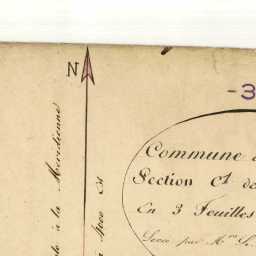 N
-3
à la Méridienne
Commune
Section C1 de
En 3 Feuilles
Levée par Mr